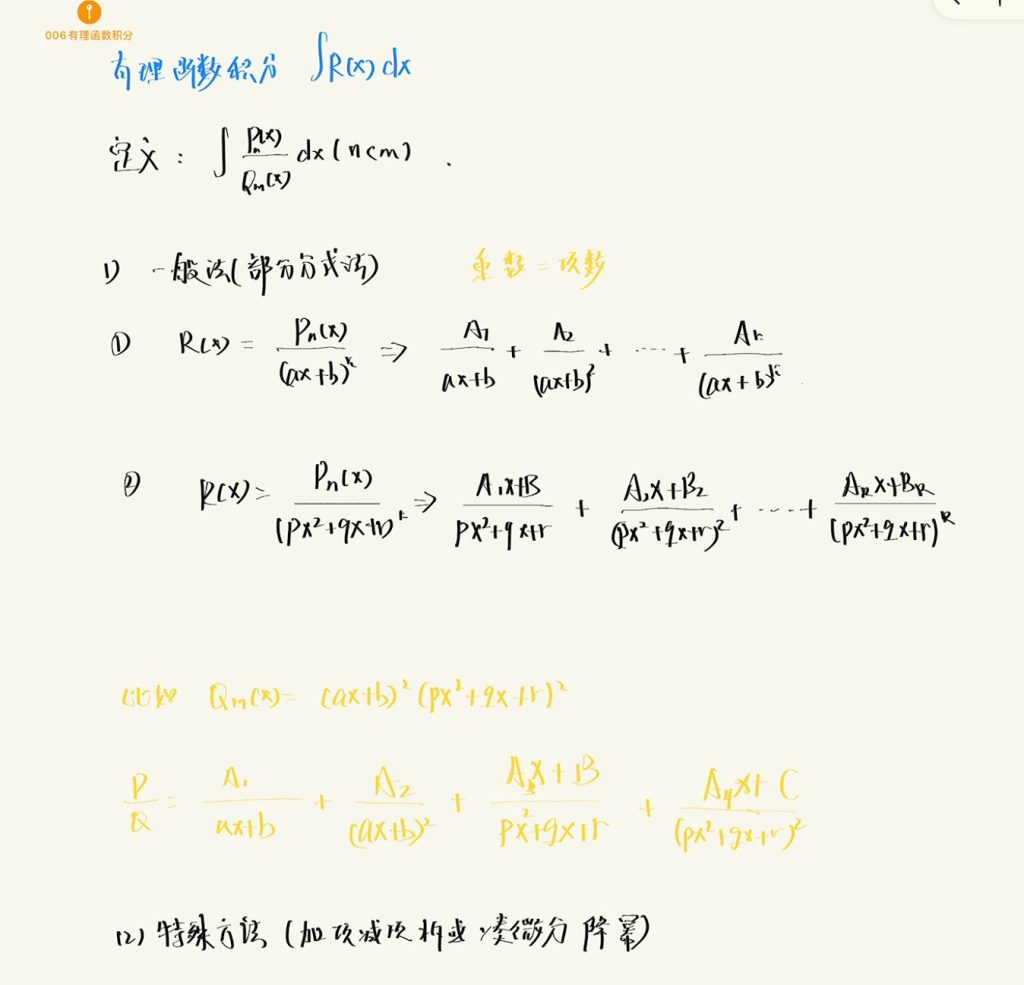 006有理函数积分
有理函数积分 ∫R(x)dx
定义: ∫ Pn(x)/Qm(x) dx (n<m).
1) 一般法(部分分式法) 重数=项数
① R(x) = Pn(x)/(ax+b)^k ⇒ A₁/(ax+b) + A₂/(ax+b)² + ⋯ + Ak/(ax+b)^k
② R(x) = Pn(x)/(px²+qx+r)^k ⇒ (A₁x+B)/(px²+qx+r) + (A₂x+B₂)/(px²+qx+r)² + ⋯ + (AkX+Bk)/(px²+qx+r)^k
比如 Qm(x) = (ax+b)²(px²+qx+r)²
P/Q = A₁/(ax+b) + A₂/(ax+b)² + (A₃x+B)/(px²+qx+r) + (A₄x+C)/(px²+qx+r)²
(2) 特殊方法 (加项减项拆或凑微分降幂)